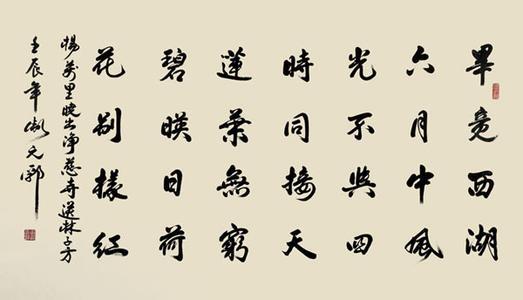 畢竟西湖
六月中風
光不與四
時同接天
蓮葉無窮
碧暎日荷
花别樣紅
楊萬里曉出净慈寺送林子方
壬辰年